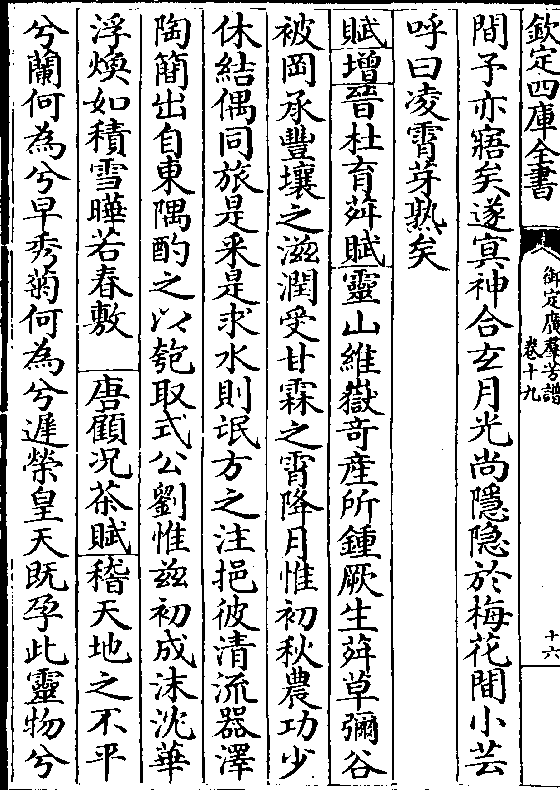 欽定四庫全書
御定廣羣芳譜
卷十九
十六
間子亦寤矣遂㝠神合𤣥月光尚隱隱於梅花間小芸
呼曰凌霄芽熟矣
賦增晉杜育荈賦靈山維嶽竒産所鍾厥生荈草彌谷
被岡承豐壤之滋潤受甘霖之霄降月惟初秋農功少
休結偶同旅是采是求水則氓方之注挹彼清流器澤
陶簡出自東隅酌之以匏取式公劉惟兹初成沫沈華
浮煥如積雪曄若春敷　唐顧况茶賦稽天地之不平
兮蘭何為兮早秀菊何為兮遲榮皇天既孕此靈物兮